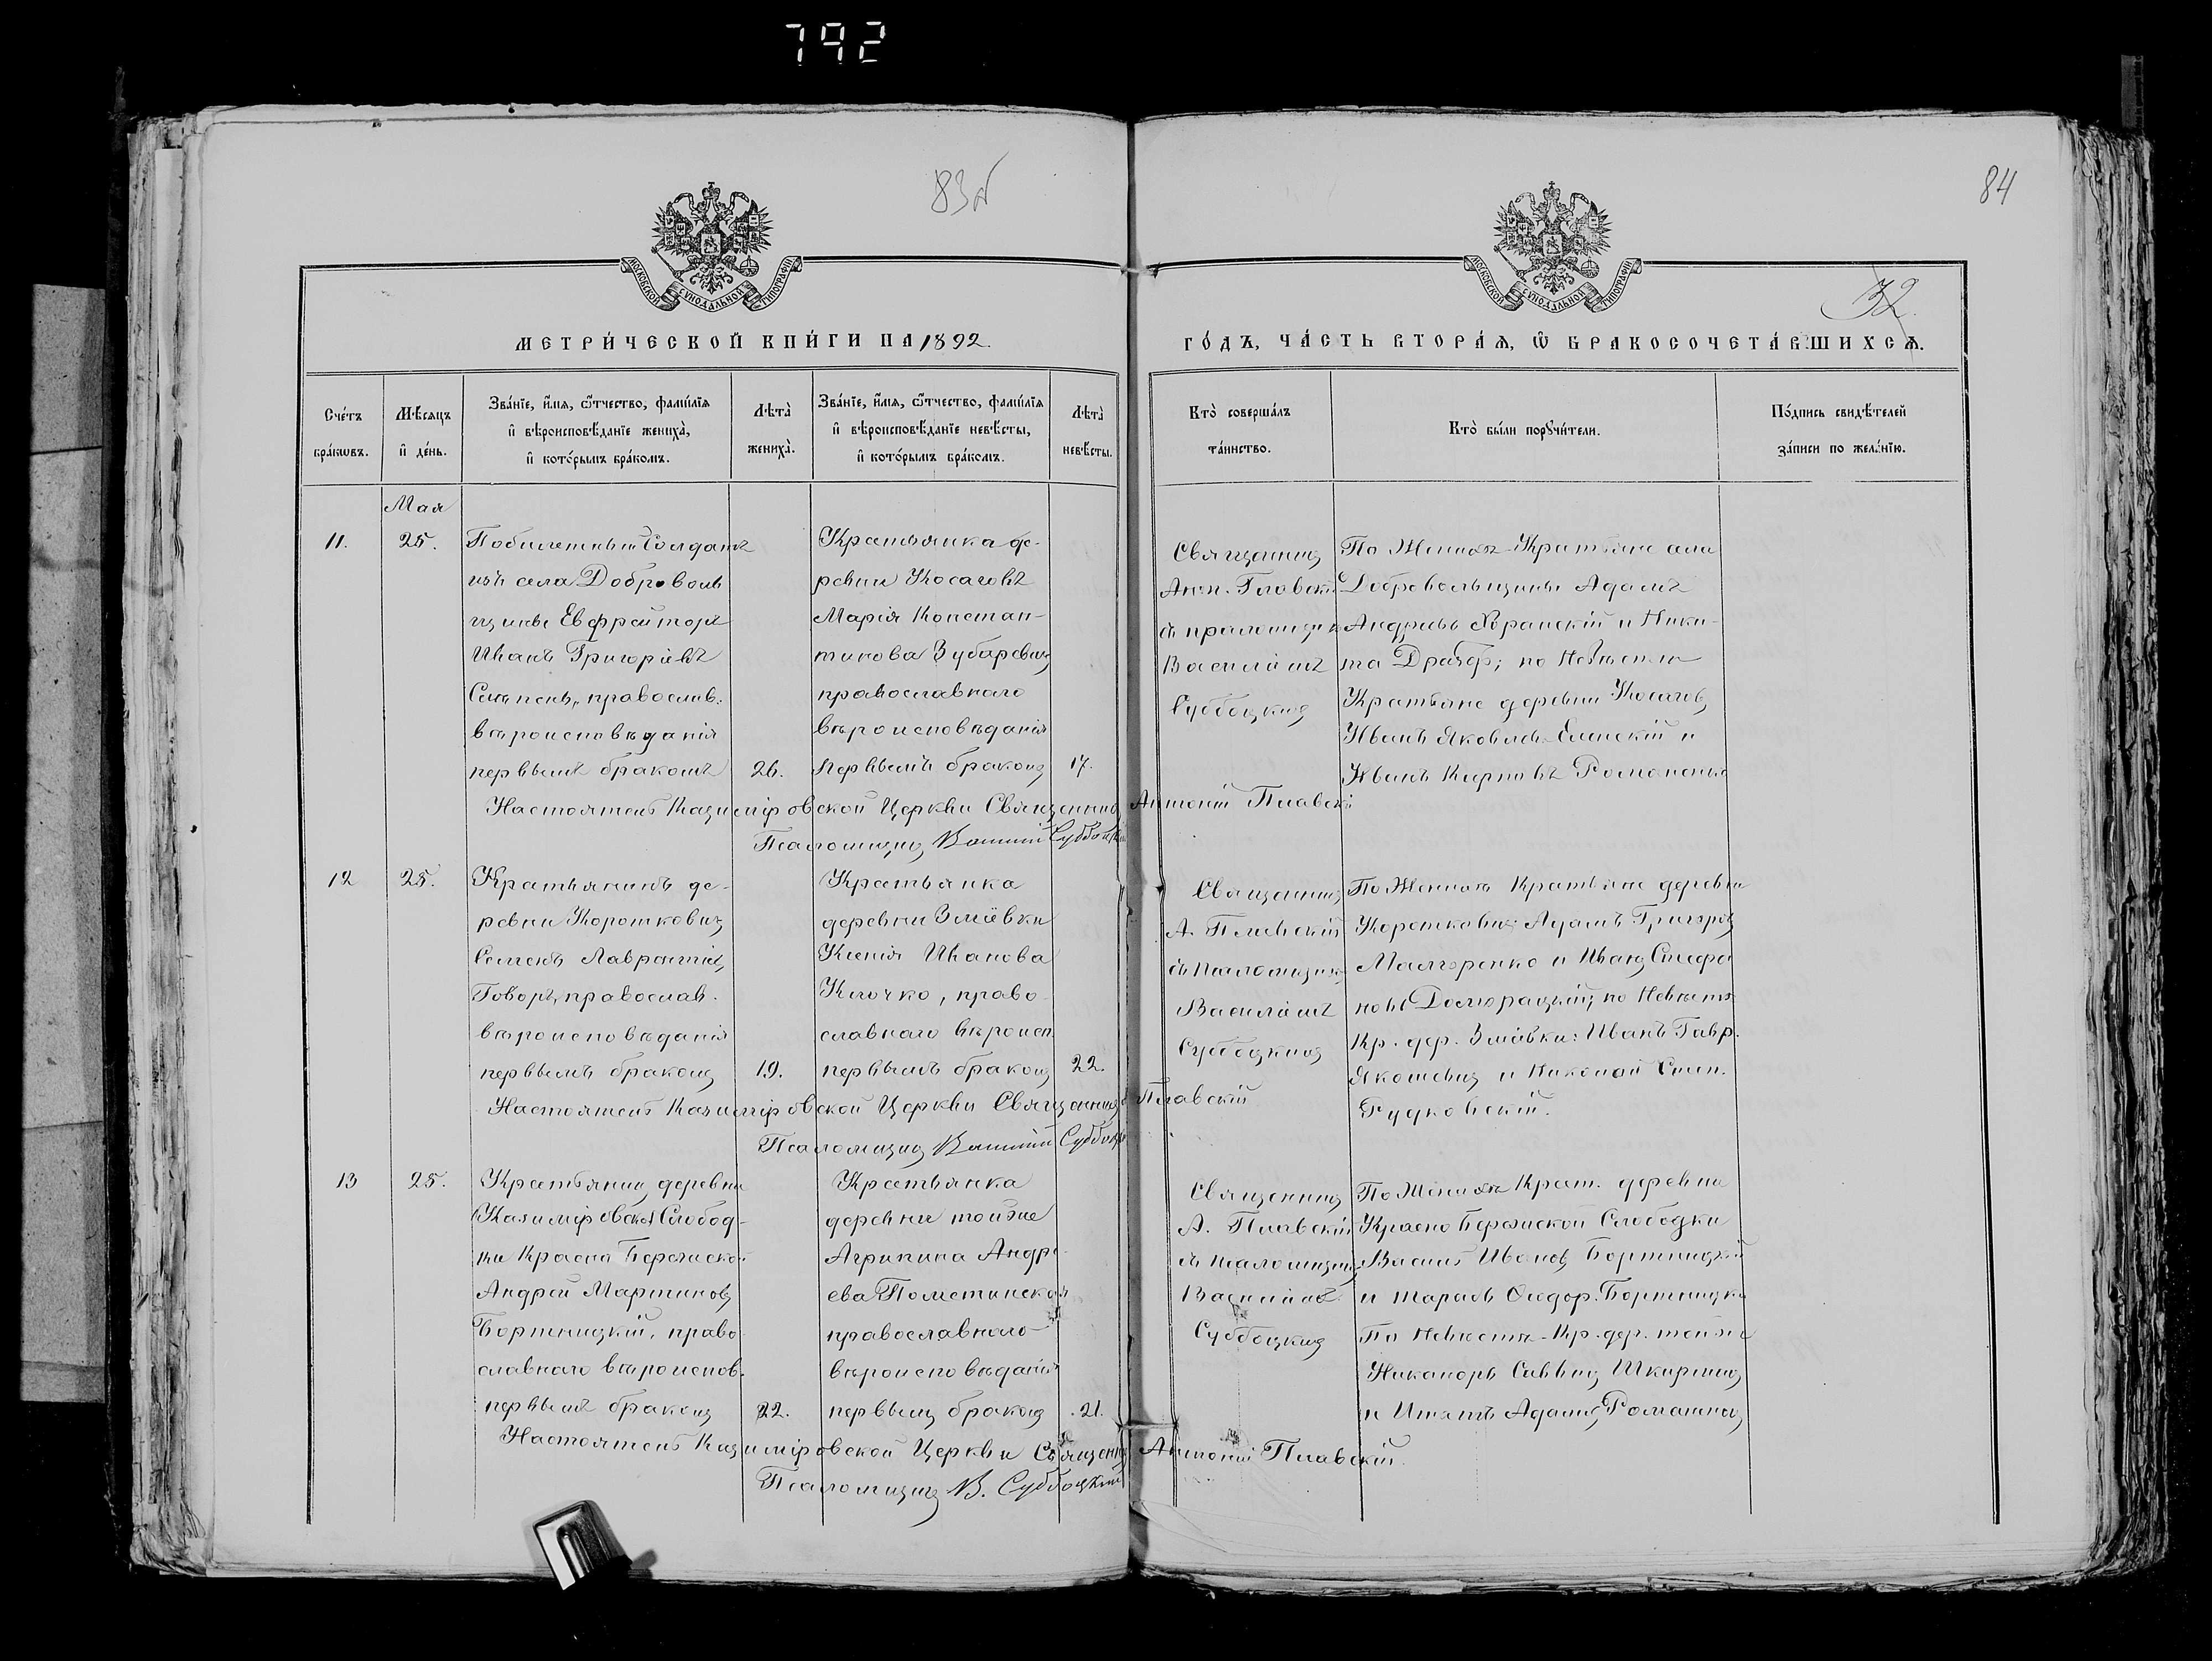 792
83б
84
32.
МОСКОВСКОЙ СѴНОДАЛЬНОЙ ТИПОГРАФІИ
МОСКОВСКОЙ СѴНОДАЛЬНОЙ ТИПОГРАФІИ
МЕТРИ́ЧЕСКОЙ КНИ́ГИ НА 1892.
ГО́ДЪ, ЧА́СТЬ ВТОРА́Ѧ, Ѽ БРАКОСОЧЕТА́ВШИХСѦ.
Сче́тъ бра́кѡвъ.
Мѣ́сѧцъ и҆ де́нь.
Зва́нїе, и҆́мѧ, ѻ҆́тчество, фами́лїѧ
и҆ вѣроисповѣ́данїе жениха̀,
и҆ кото́рымъ бра́комъ.
Лѣта̀ жениха̀.
Зва́нїе, и҆́мѧ, ѻ҆́тчество, фами́лїѧ
и҆ вѣроисповѣ́данїе невѣ́сты,
и҆ кото́рымъ бра́комъ.
Лѣта̀ невѣ́сты.
Кто̀ соверша́лъ
та́инство.
Кто̀ бы́ли порꙋчи́тели.
По́дпись свидѣ́телей
за́писи по жела́нїю.
Мая
11.
25.
Побилетный Солдатъ
изъ села Доброволь
щины Ефрейторъ
Иванъ Григоріевъ
православ.
вѣроисповѣданія
первымъ бракомъ
26.
Крестьянка де-
ревни Косаговъ
Марія Констан-
тинова Зубаревич
православнаго
вѣроисповѣданія
первымъ бракомъ
17.
Священникъ
Ант. Плавскій
съ псаломщик.
Василіемъ
Суббоцкимъ
По Женихѣ Крестьяне села
Добровольщины Адамъ
Андреевъ и Ники-
та по Невѣстѣ
Крестьяне деревни Косаговъ
Иванъ Яковлевъ и
Иванъ Карповъ Романенко
Настоятель Казиміровской Церкви Священникъ Антоній Плавскій
Псаломщикъ Василій Суббоцкій
12
25.
Крестьянинъ де-
ревни Короткович
Семенъ Лаврентіев
Говоръ, православ.
вѣроисповѣданія
первымъ бракомъ
19.
Крестьянка
деревни Зміёвки
Ксенія Иванова
Клочко, право-
славнаго вѣроисп.
первымъ бракомъ
22.
Священникъ
А. Плавскій
съ псаломщик.
Василіемъ
Суббоцкимъ
По Женихѣ Крестьяне деревни
Короткович Адамъ Григоров
и Иванъ Стефа
новъ по Невѣстѣ
Кр. дер. Зміёвки: Иванъ Гавр.
и Николай Степ.
Рудковскій.
Настоятель Казиміровской Церкви Священникъ Плавскій
Псаломщикъ Василій Суббоцкій
13
25.
Крестьянинъ деревни
Казимировской Слобод-
ки Красно Бережской
Андрей Мартиновъ
Бортницкій, право
славнаго вѣроисповѣд.
первымъ бракомъ
22.
Крестьянка
деревни тойже
Агрипина Андре-
ева
православнаго
вѣроисповѣданія
первымъ бракомъ
21.
Священникъ
А. Плавскій
съ псаломщик.
Василіемъ
Суббоцкимъ
По Женихѣ Крест. деревни
Красно Бережской Слободки
Василій Ивановъ Бортницкій
и Тарасъ Ѳеодор. Бортницкій
По Невѣстѣ - Кр. дер. тойже
Никаноръ Саввинъ
и Игнатъ Адамов
Настоятель Казимировской Церкви Священникъ Антоній Плавскій.
Псаломщикъ В. Суббоцкій